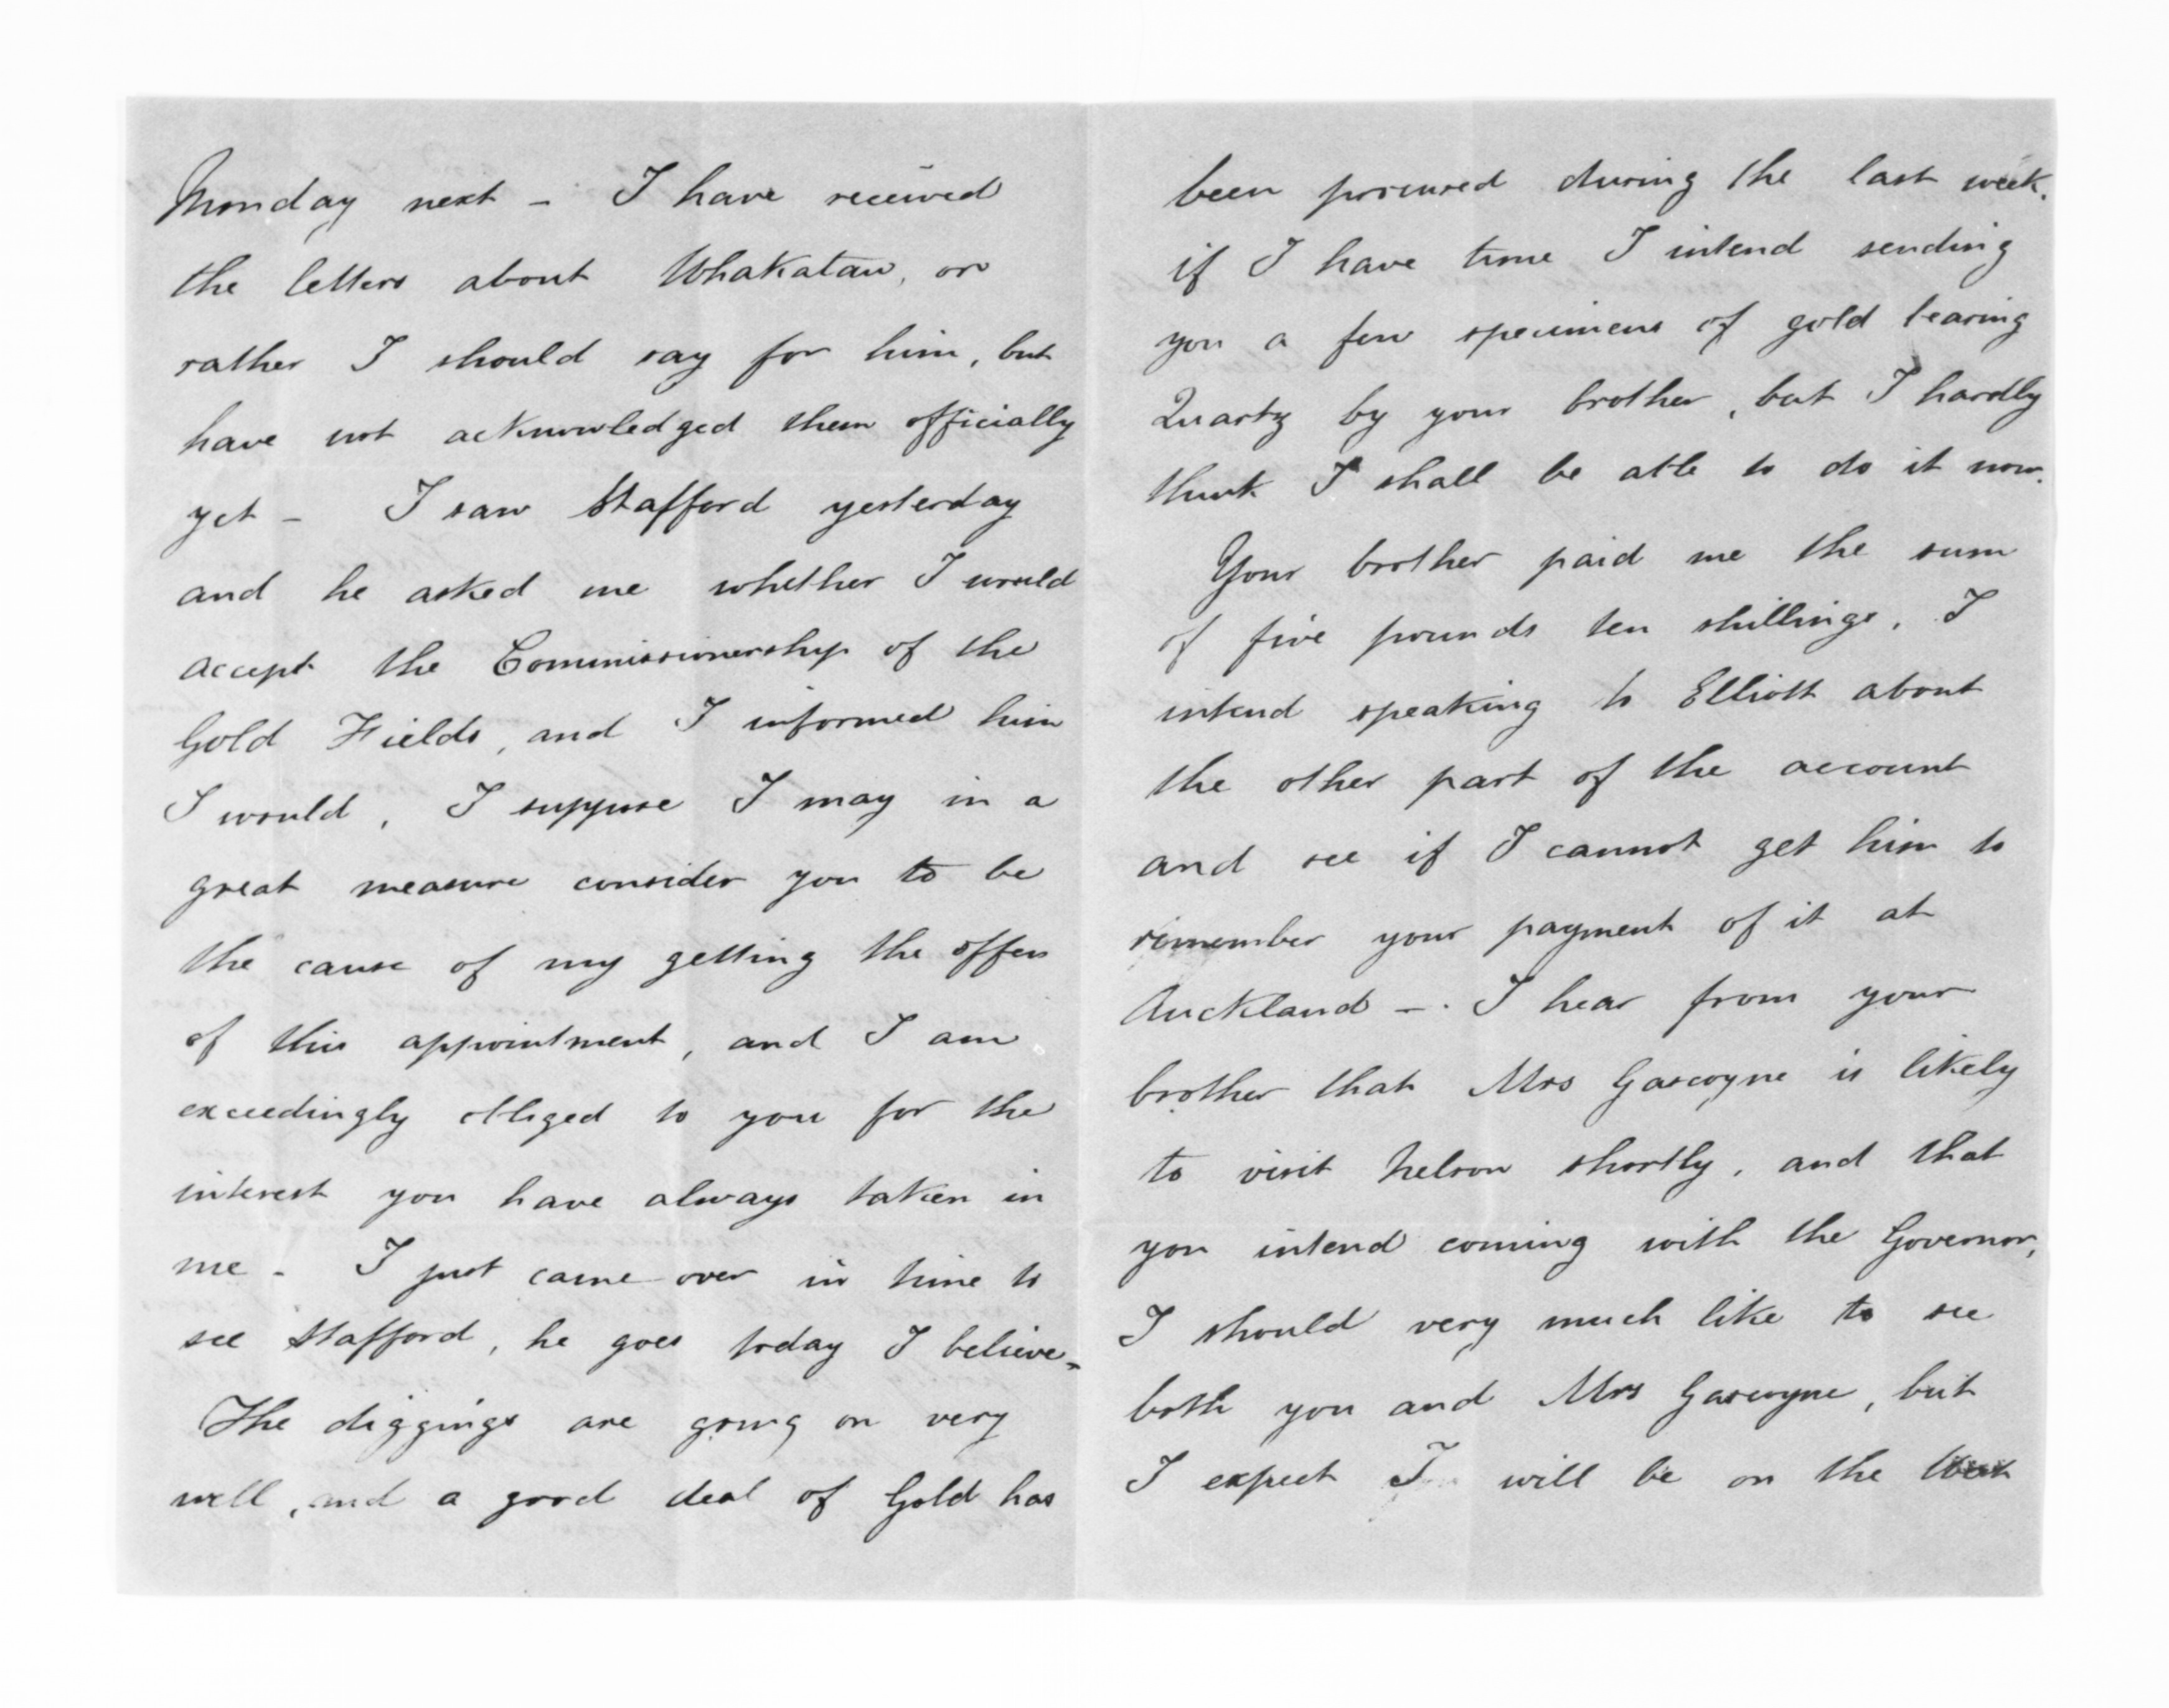 Monday next - I have received
the letters about Whakatau, or
rather I should say for him, but
have not acknowledged them officially
yet - I saw Stafford yesterday
and he asked me whether I would
accept the Commissionership of the
Gold Fields, and I informed him
I would, I suppose I may in a
great measure consider you to be
the cause of my getting the offer
of this appointment, and I am
exceedingly obliged to you for the
interest you have always taken in
me - I just came over in time to
see Stafford, he goes today I believe -
The diggings are going on very
well, and a good deal of Gold has
been procured during the last week.
if I have time I intend sending
you a few specimens of gold bearing
Quartz by your brother, but I hardly
think I shall be able to do it now.
Your brother paid me the sum
of five pounds ten shillings. I
intend speaking to Elliott about
the other part of the account
and see if I cannot get him to
remember your payment of it at
Auckland -. I hear from your
brother that Mrs Gascoyne is likely
to visit Nelson shortly, and that
you intend coming with the Governor,
I should very much like to see
both you and Mrs Gascoyne, but
I expect I will be on the West